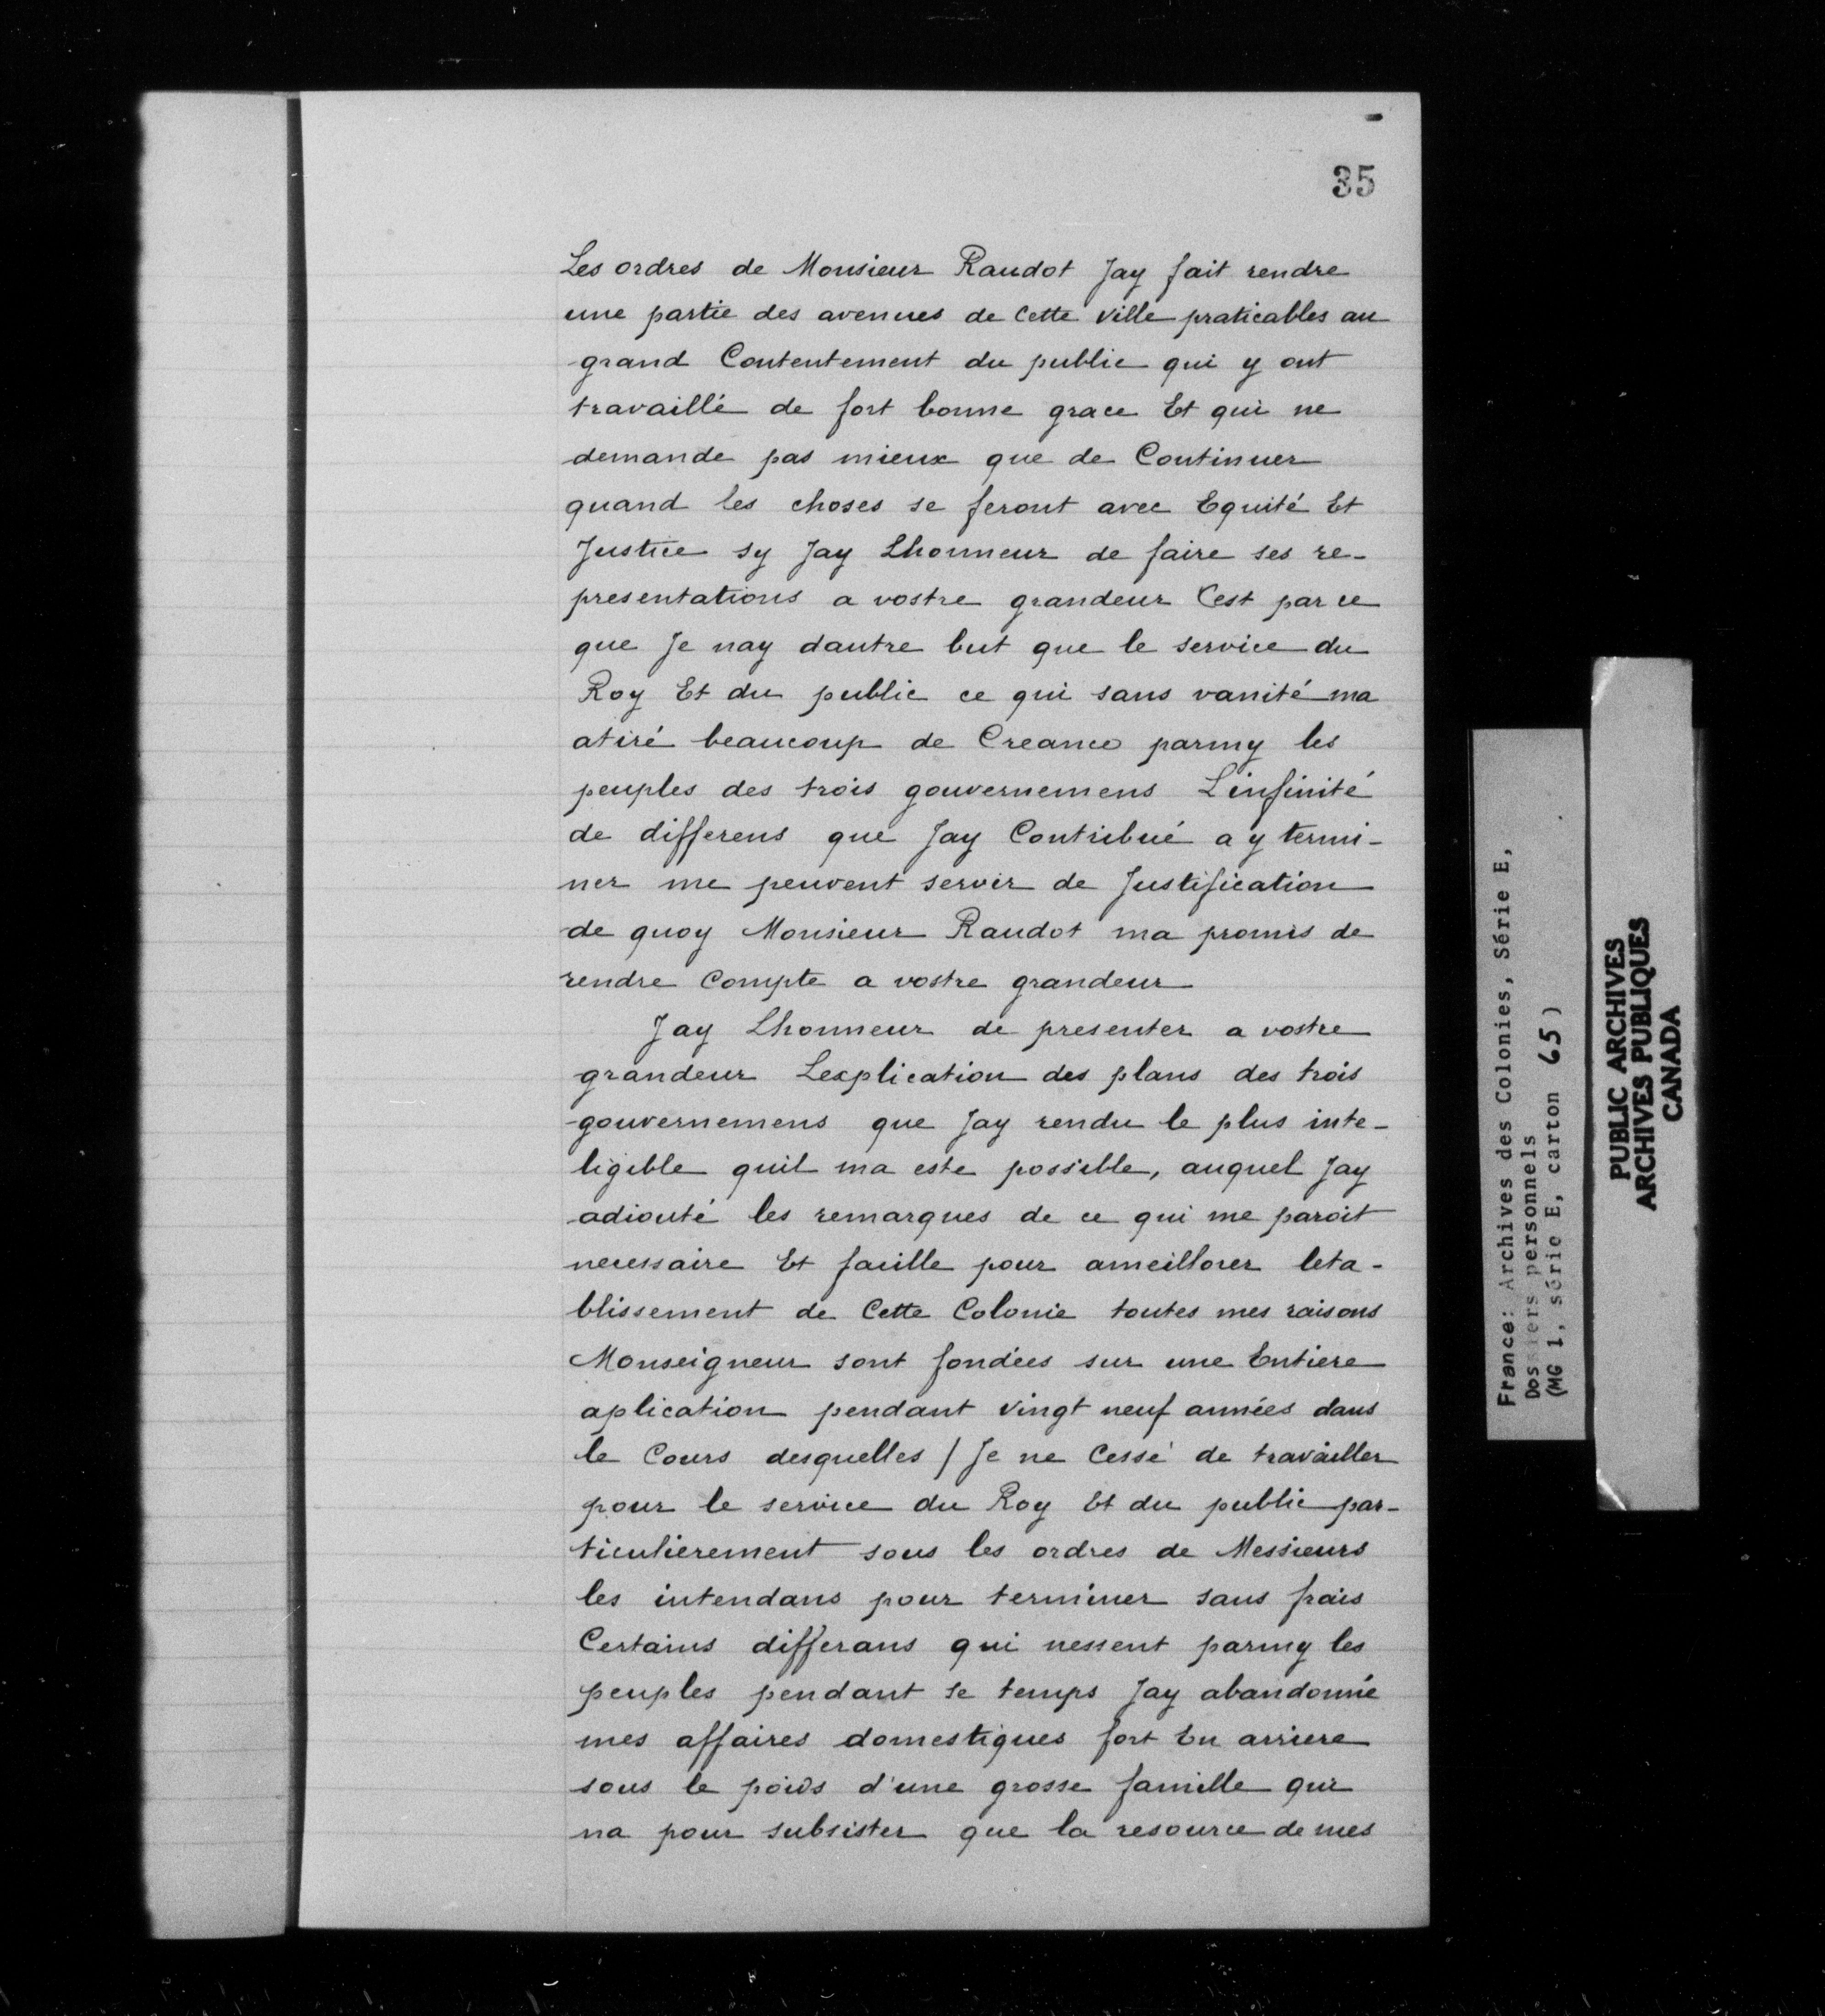 35
Les ordres de Monsieur Raudot Jay fait rendre
une partie des avenues de Cette ville praticables au
grand Contentement du public qui y ont
travaillé de fort bonne grace Et qui ne
demande pas mieux que de Continuer
quand les choses se feront avec Equité Et
Justice sy Jay Lhonneur de faire ses re-
presentations a vostre grandeur Cest par ce
que Je nay dautre but que le service du
Roy Et du public ce qui sans vanité ma
atiré beaucoup de Creance parmy les
peuples des trois gouvernemens Linfinité
de differens que Jay Contribué a y termi-
ner me peuvent servir de Justification
de quoy Monsieur Raudot ma promis de
rendre Compte a vostre grandeur
Jay Lhonneur de presenter a vostre
grandeur Lexplication des plans des trois
gouvernemens que Jay rendu le plus inte-
ligible quil ma este possible, auquel Jay
adiouté les remarques de ce qui me paroit
necessaire Et facille pour ameillorer leta-
blissement de Cette Colonie toutes mes raisons
Monseigneur sont fondées sur une Entiere
aplication pendant vingt neuf années dans
le Cours desquelles / Je ne Cessé de travailler
pour le service du Roy Et du public par-
ticulierement sous les ordres de Messieurs
les intendans pour terminer sans frais
Certains differans qui nessent parmy les
peuples pendant se temps Jay abandonné
mes affaires domestiques fort En arriere
sous le poids d'une grosse famille qui
na pour subsister que la resource de mes
France: Archives des Colonies, Série E,
Dossiers personnels
(MG 1, série E, carton 65)
PUBLIC ARCHIVES
ARCHIVES PUBLIQUES
CANADA